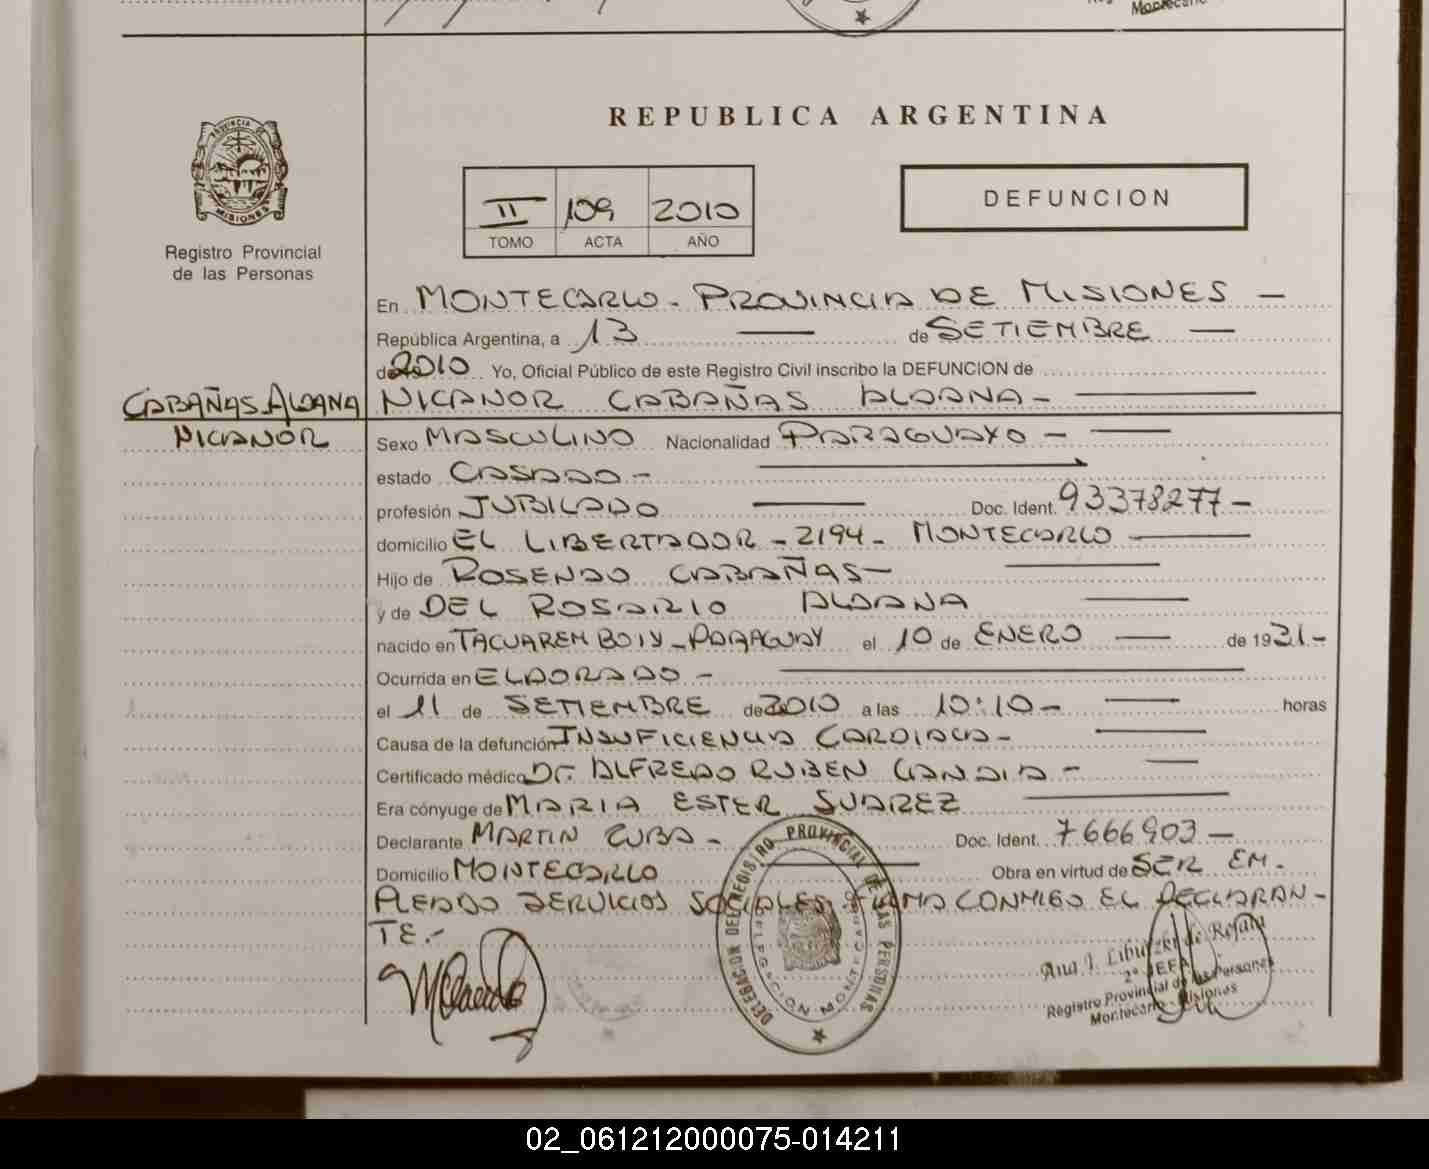 Montecarlo
REPUBLICA ARGENTINA
PROVINCIA DE
MISIONES
Registro Provincial
de las Personas
II 109 2010
TOMO ACTA AÑO
DEFUNCION
En MONTECARLO - PROVINCIA DE MISIONES —
República Argentina, a 13 — de SETIEMBRE —
de 2010 Yo, Oficial Público de este Registro Civil inscribo la DEFUNCION de
CABAÑAS ALDANA NICANOR CABAÑAS ALDANA - —
NICANOR Sexo MASCULINO Nacionalidad PARAGUAYO - —
estado CASADO - —
profesión JUBILADO — Doc. Ident. 93378277 -
domicilio EL LIBERTADOR - 2194 - MONTECARLO —
Hijo de ROSENDO CABAÑAS — —
y de DEL ROSARIO ALDANA —
nacido en TACUAREMBOIY - PARAGUAY el 10 de ENERO — de 1931 -
Ocurrida en ELDORADO - —
el 11 de SETIEMBRE de 2010 a las 10:10 - — horas
Causa de la defunción INSUFICIENCIA CARDIACA - —
Certificado médico Dr. ALFREDO RUBEN CANDIA - —
Era cónyuge de MARIA ESTER SUAREZ —
Declarante MARTIN CUBA - Doc. Ident. 7666903 —
Domicilio MONTECARLO — Obra en virtud de SER EM-
PLEADO SERVICIOS SOCIALES FIRMA CONMIGO EL DECLARAN-
TE.-
DELEGACION DEL REGISTRO PROVINCIAL DE LAS PERSONAS
Ana J. de Rojas
2º JEFA
Registro Provincial de las Personas
Montecarlo - Misiones
02_061212000075-014211